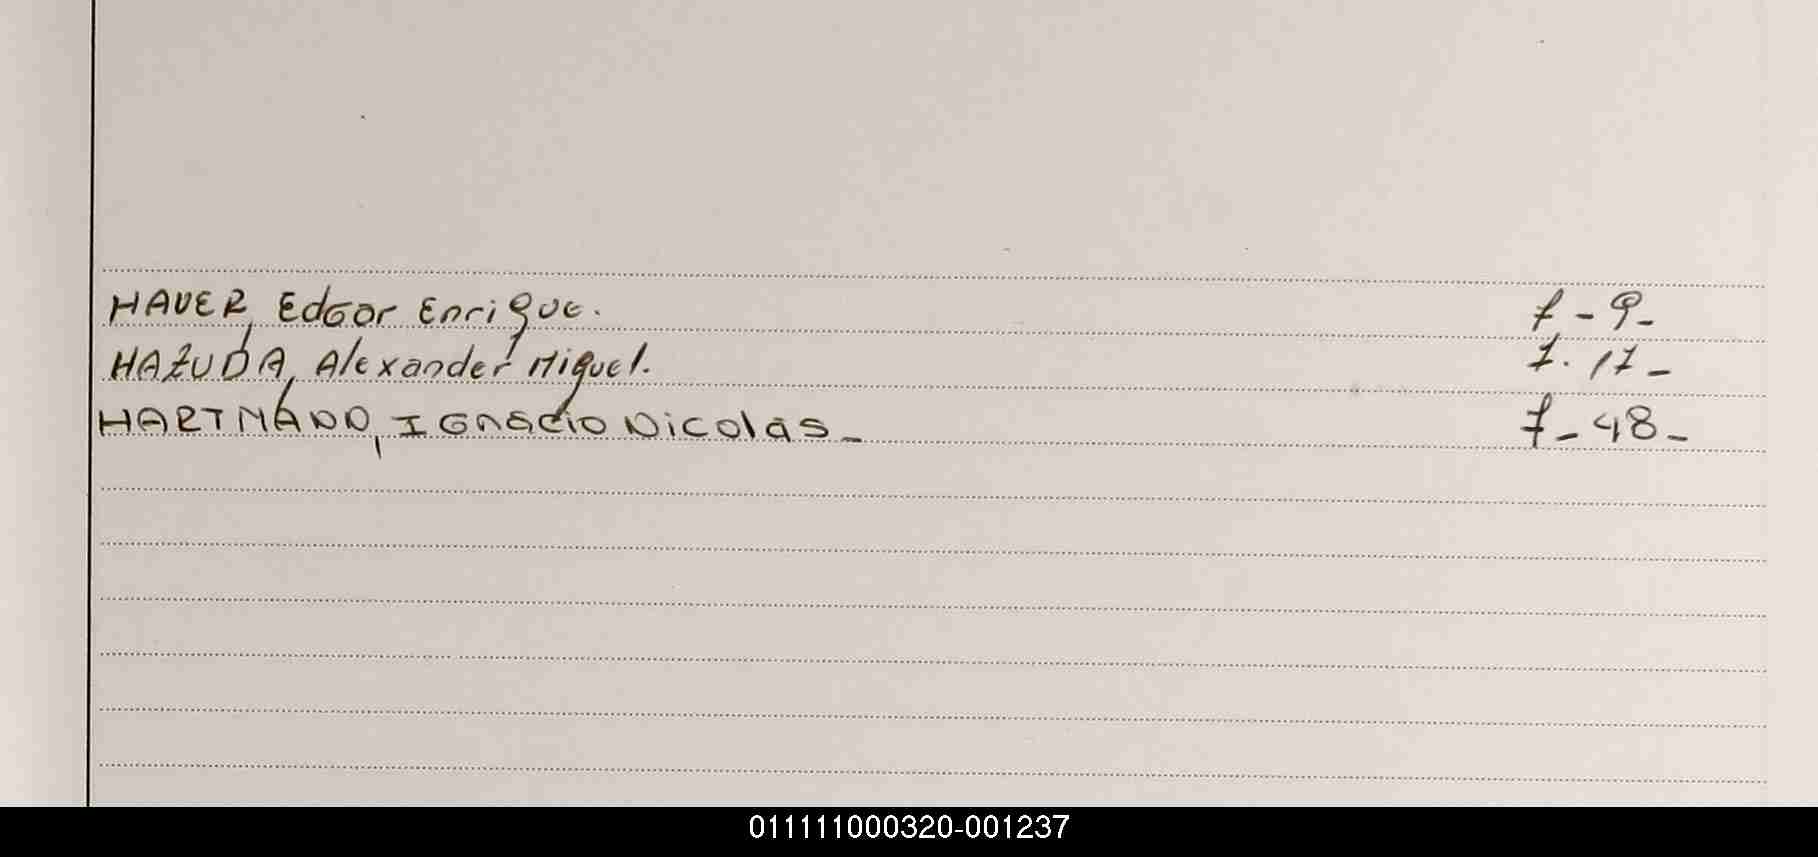 HAUER, Edgar Enrique.
7 - 9 -
HAZUDA, Alexander Miguel.
7. 17 -
HARTMANN, Ignacio Nicolás -
7 - 48 -
011111000320-001237